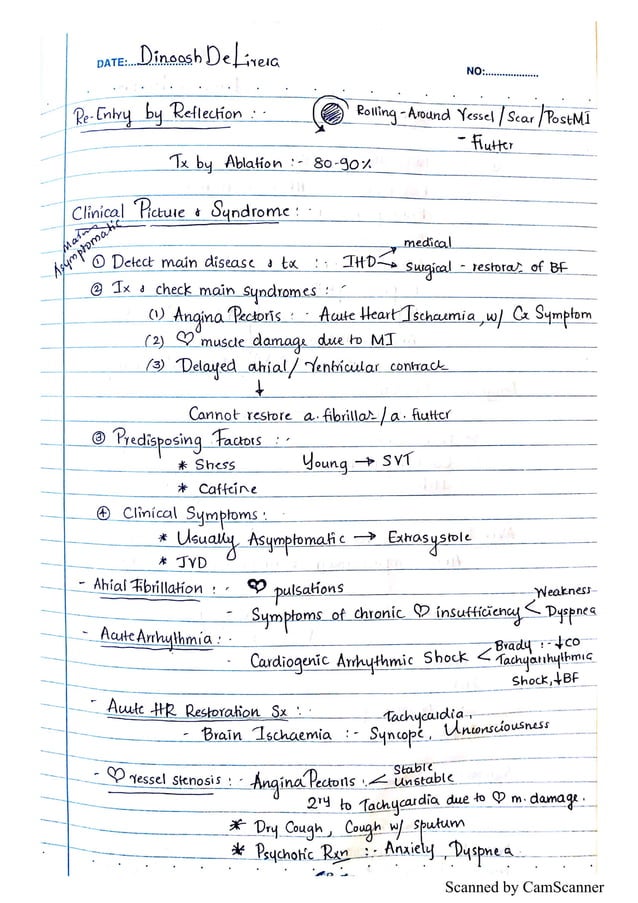 DATE:... Dinoosh De Livera
NO:...................
Re-Entry by Reflection :- Rolling-Around Vessel / Scar / PostMI
- Flutter
Tx by Ablation :- 80-90%
Clinical Picture & Syndrome :-
Mainly Asymptomatic
① Detect main disease & tx :- IHD → medical
→ Surgical - restorat° of BF
② Ix & check main syndromes :-
(1) Angina Pectoris :- Acute Heart Ischaemia, w/ Cx Symptom
(2) ♡ muscle damage due to MI
(3) Delayed atrial / Ventricular contract
↓
Cannot restore a. fibrillat° / a. flutter
③ Predisposing Factors :-
* Stress Young → SVT
* Caffeine
④ Clinical Symptoms :
* Usually Asymptomatic → Extrasystole
* JVD
- Atrial Fibrillation :- ♡ pulsations
- Symptoms of chronic ♡ insufficiency < Weakness
Dyspnea
- Acute Arrhythmia :-
- Cardiogenic Arrhythmic Shock < Brady :- ↓CO
Tachyarrhythmic
Shock, ↓BF
- Acute HR Restoration Sx :-
- Brain Ischaemia :- Tachycardia, Syncope, Unconsciousness
- ♡ vessel stenosis :- Angina Pectoris :< Stable
Unstable
2ry to Tachycardia due to ♡ m. damage.
* Dry Cough, Cough w/ sputum
* Psychotic Rxn :- Anxiety, Dyspnea
Scanned by CamScanner